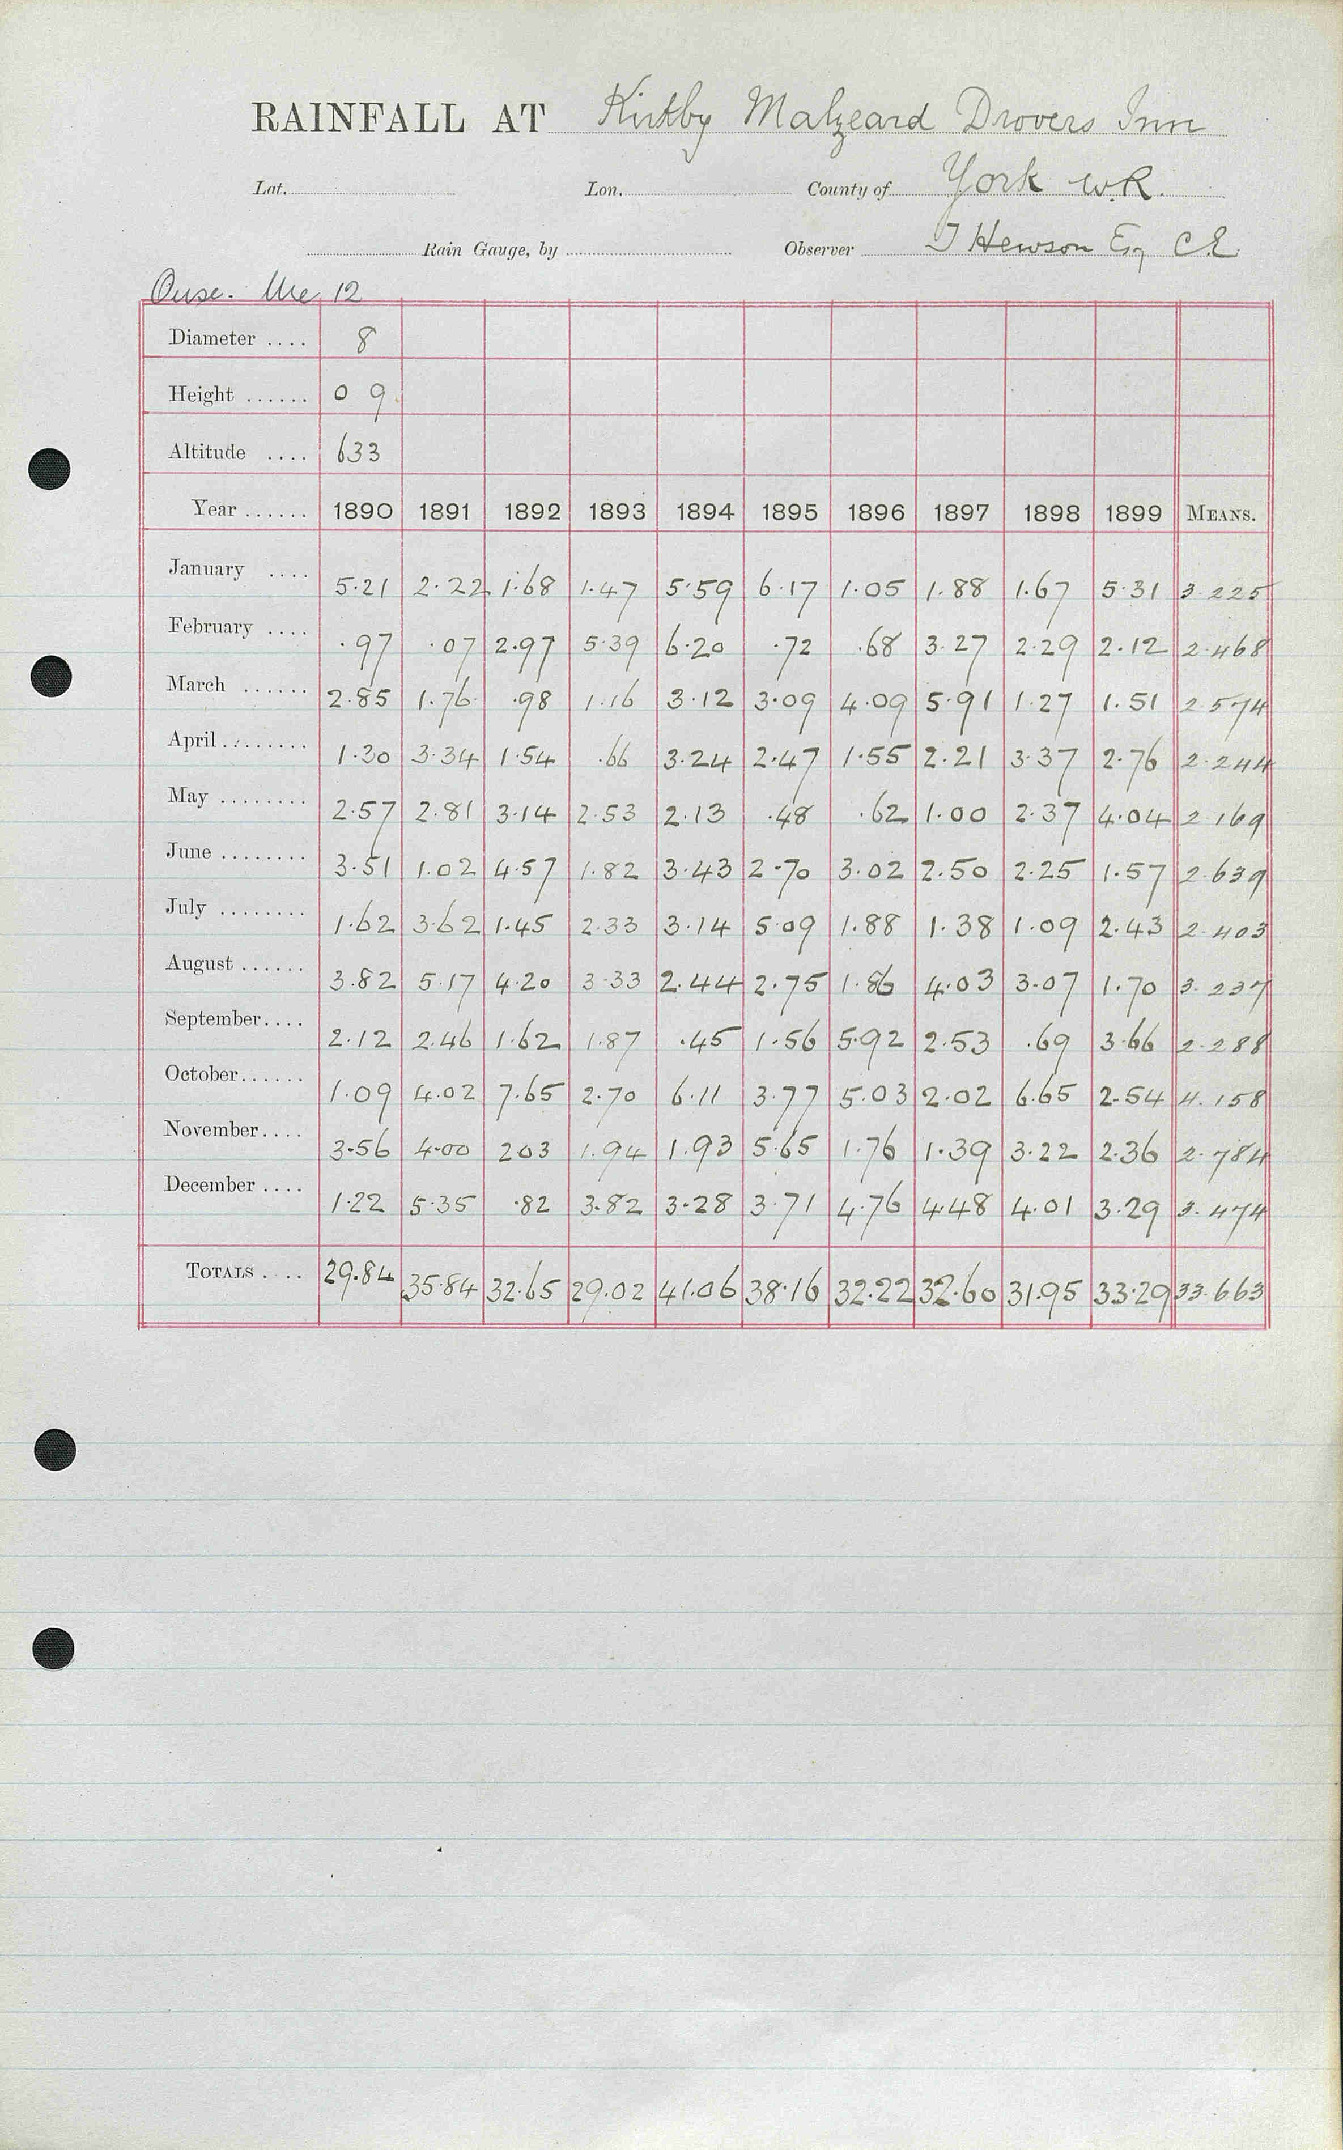 RAINFALL AT Kirkby Malzeard Drovers Inn
Lat. Lon. County of York W.R.
Rain Gauge, by Observer T Hewson Esq C.E.
Ouse. Ure 12
Diameter .... 8
Height ...... 0 9
Altitude .... 633
Year ...... 1890 1891 1892 1893 1894 1895 1896 1897 1898 1899 MEANS.
January .... 5.21 2.22 1.68 1.47 5.59 6.17 1.05 1.88 1.67 5.31 3.225
February .... .97 .07 2.97 5.39 6.20 .72 .68 3.27 2.29 2.12 2.468
March ...... 2.85 1.76 .98 1.16 3.12 3.09 4.09 5.91 1.27 1.51 2.574
April ........ 1.30 3.34 1.54 .66 3.24 2.47 1.55 2.21 3.37 2.76 2.244
May ........ 2.57 2.81 3.14 2.53 2.13 .48 .62 1.00 2.37 4.04 2.169
June ........ 3.51 1.02 4.57 1.82 3.43 2.70 3.02 2.50 2.25 1.57 2.639
July ........ 1.62 3.62 1.45 2.33 3.14 5.09 1.88 1.38 1.09 2.43 2.403
August ...... 3.82 5.17 4.20 3.33 2.44 2.75 1.86 4.03 3.07 1.70 3.237
September.... 2.12 2.46 1.62 1.87 .45 1.56 5.92 2.53 .69 3.66 2.288
October...... 1.09 4.02 7.65 2.70 6.11 3.77 5.03 2.02 6.65 2.54 4.158
November.... 3.56 4.00 203 1.94 1.93 5.65 1.76 1.39 3.22 2.36 2.784
December .... 1.22 5.35 .82 3.82 3.28 3.71 4.76 4.48 4.01 3.29 3.474
TOTALS .... 29.84 35.84 32.65 29.02 41.06 38.16 32.22 32.60 31.95 33.29 33.663